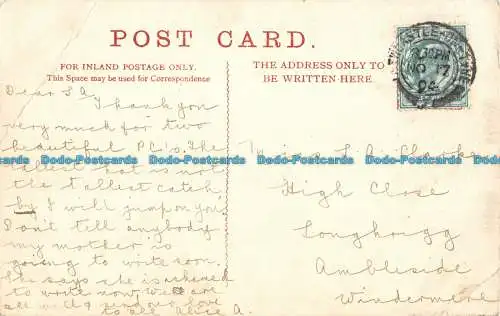 POST CARD.
FOR INLAND POSTAGE ONLY.
This Space may be used for Correspondence
THE ADDRESS ONLY TO
BE WRITTEN HERE.
Dear S A Thank you
very much for two
beautiful P C's. The
tallest hat is not
the tallest catch
by I will jump on you
Don't tell anybody
my mother is
going to write soon.
She says she is ashamed
to write now, we are
all well & send our love
to all Alice A.
Miss L. A. Clarke
High Close
Longhrigg
Ambleside
Windermere
NO 17
Dodo-Postcards Dodo-Postcards Dodo-Postcards Dodo-Postcards Dodo-Postcards